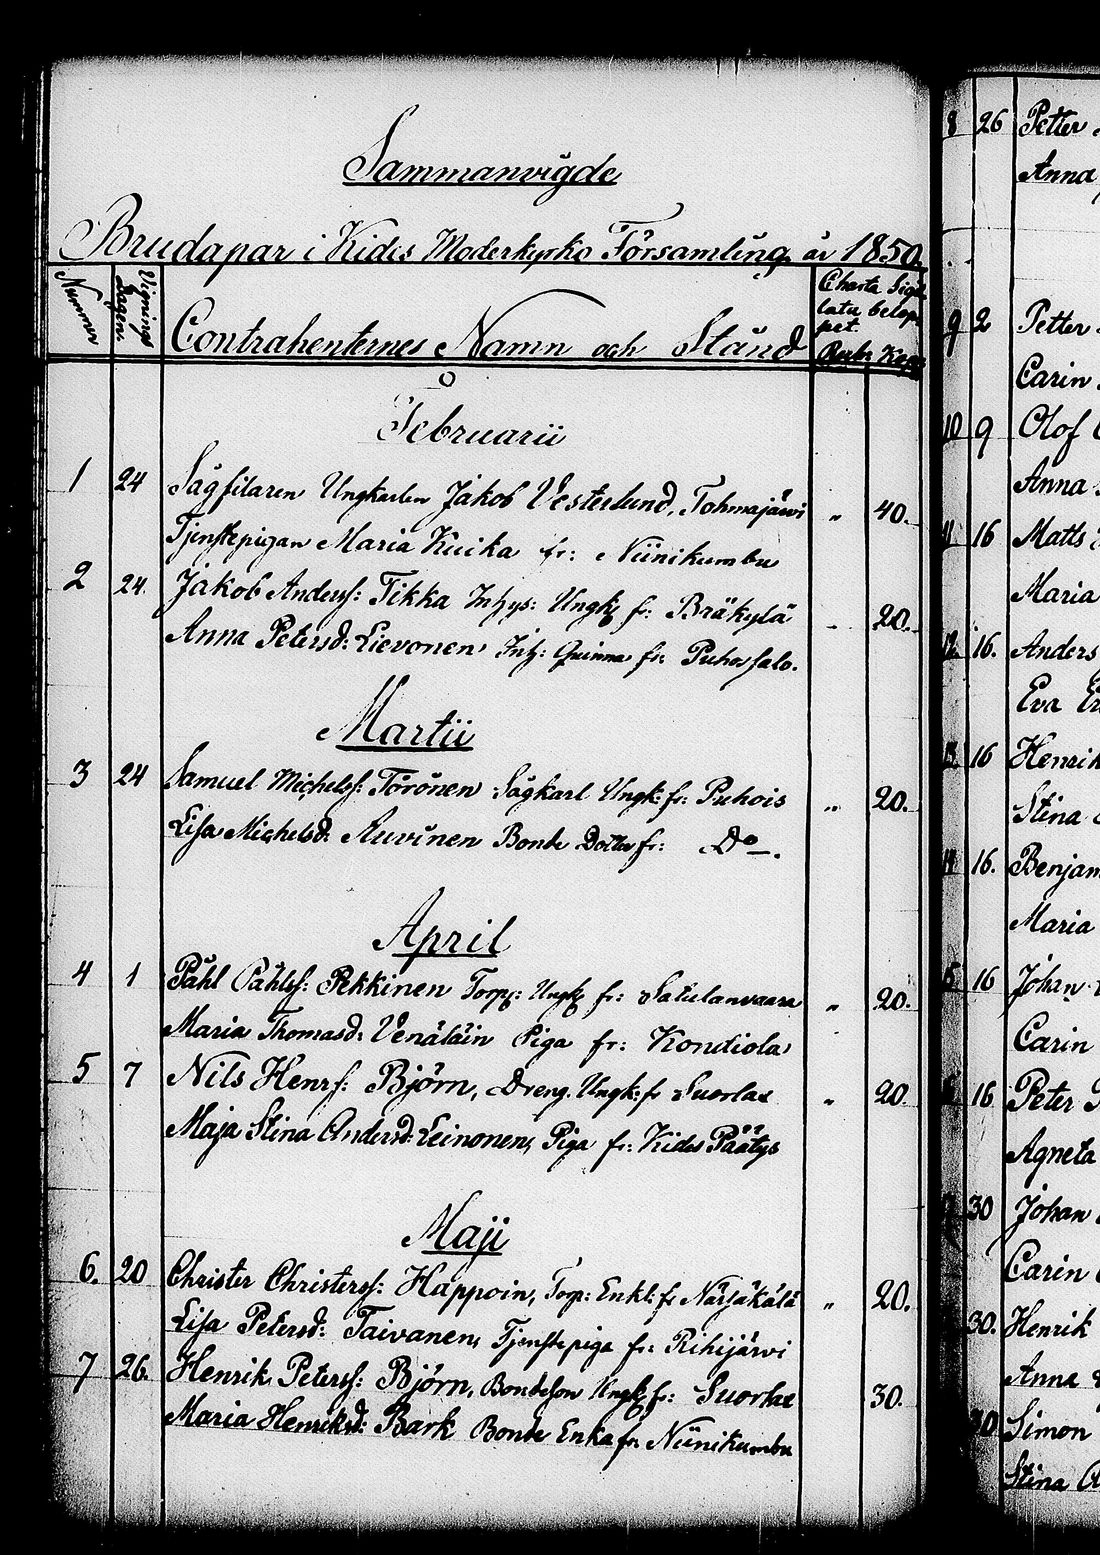 Sammanvigde
Brudapar i Kides Moderkyrko Församling år 1850.
Nummer
Vignings Dagen.
Contrahenternes Namn och Stånd
Charta Sigil
latæ belop
pet.
Rub: Kop:
Februarii
1 24 Sågfilaren Ungkarlen Jakob Vesterlund, Tohmajärvi „ 40.
Tjenstepigan Maria Kuika fr: Niinikumbu
2 24. Jakob Anderss: Tikka Inhys: Ungk: fr: Bräkylä „ 20.
Anna Petersd: Lievonen Inh: Quinna fr: Puhossalo.
Martii
3 24 Samuel Michelss: Törönen Sågkarl Ungk: fr: Puhois „ 20.
Lisa Michelsd: Auvinen Bonde Dotter fr: Do.
April
4 1 Påhl Påhlss: Pekkinen Torp: Ungk: fr: Satulanvaara „ 20.
Maria Thomasd: Venäläin Piga fr: Kondiola
5 7 Nils Henrs: Björn, Dreng. Ungk: fr Suorlax „ 20.
Maja Stina Andersd: Leinonen, Piga fr: Kides Päätys
Maji
6. 20 Christer Christerss: Happoin, Torp: Enkl: fr Närsäkälä „ 20.
Lisa Petersd: Taivanen, Tjenstepiga fr: Riihijärvi
7 26. Henrik Peterss: Björn, Bondeson Ungk: fr: Suorlax 30.
Maria Henriksd: Bark Bonde Enka fr. Niinikumbu
8 26 Petter
Anna
9 2 Petter
Carin
10 9 Olof
Anna
11 16 Matts
Maria
12. 16. Anders
Eva
13 16 Henrik
Stina
14 16. Benjam
Maria
15 16 Johan
Carin
16 Peter
Agneta
30 Johan
Carin
30. Henrik
Anna
30 Simon
Stina